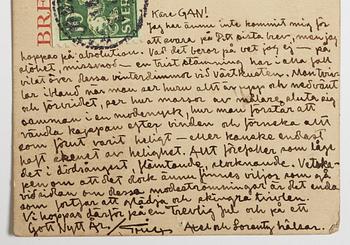 BRE
SVERI
Käre GAN!
Jag har ännu inte kommit mig för
att svara på Ditt sista brev, men jag
hoppas på absolution. Vad det beror på vet jag ej — på
slöhet, missmod — en trist stämning har i alla fall
vilat över dessa vinterdimmor vid västkusten. Man tviv-
lar ibland när man ser huru allt är upp och nedvänt
och förvridet, ser hur massor av målare sluta sig
samman i en modenyck, hur man förstår att
vända kappan efter vinden och förneka allt
som förut varit heligt — eller kanske endast
haft skenet av helighet. Allt förefaller som låge
det i dödsångest, flämtande, slocknande. Vetska-
pen om att det dock ännu finnes viljor som gå
vid sidan om dessa modeströmningar är det enda
som förtar att glädja och skingra tvivlen.
Vi hoppas därför på en trevlig jul och på ett
Gott Nytt År. Axel och hälsar.